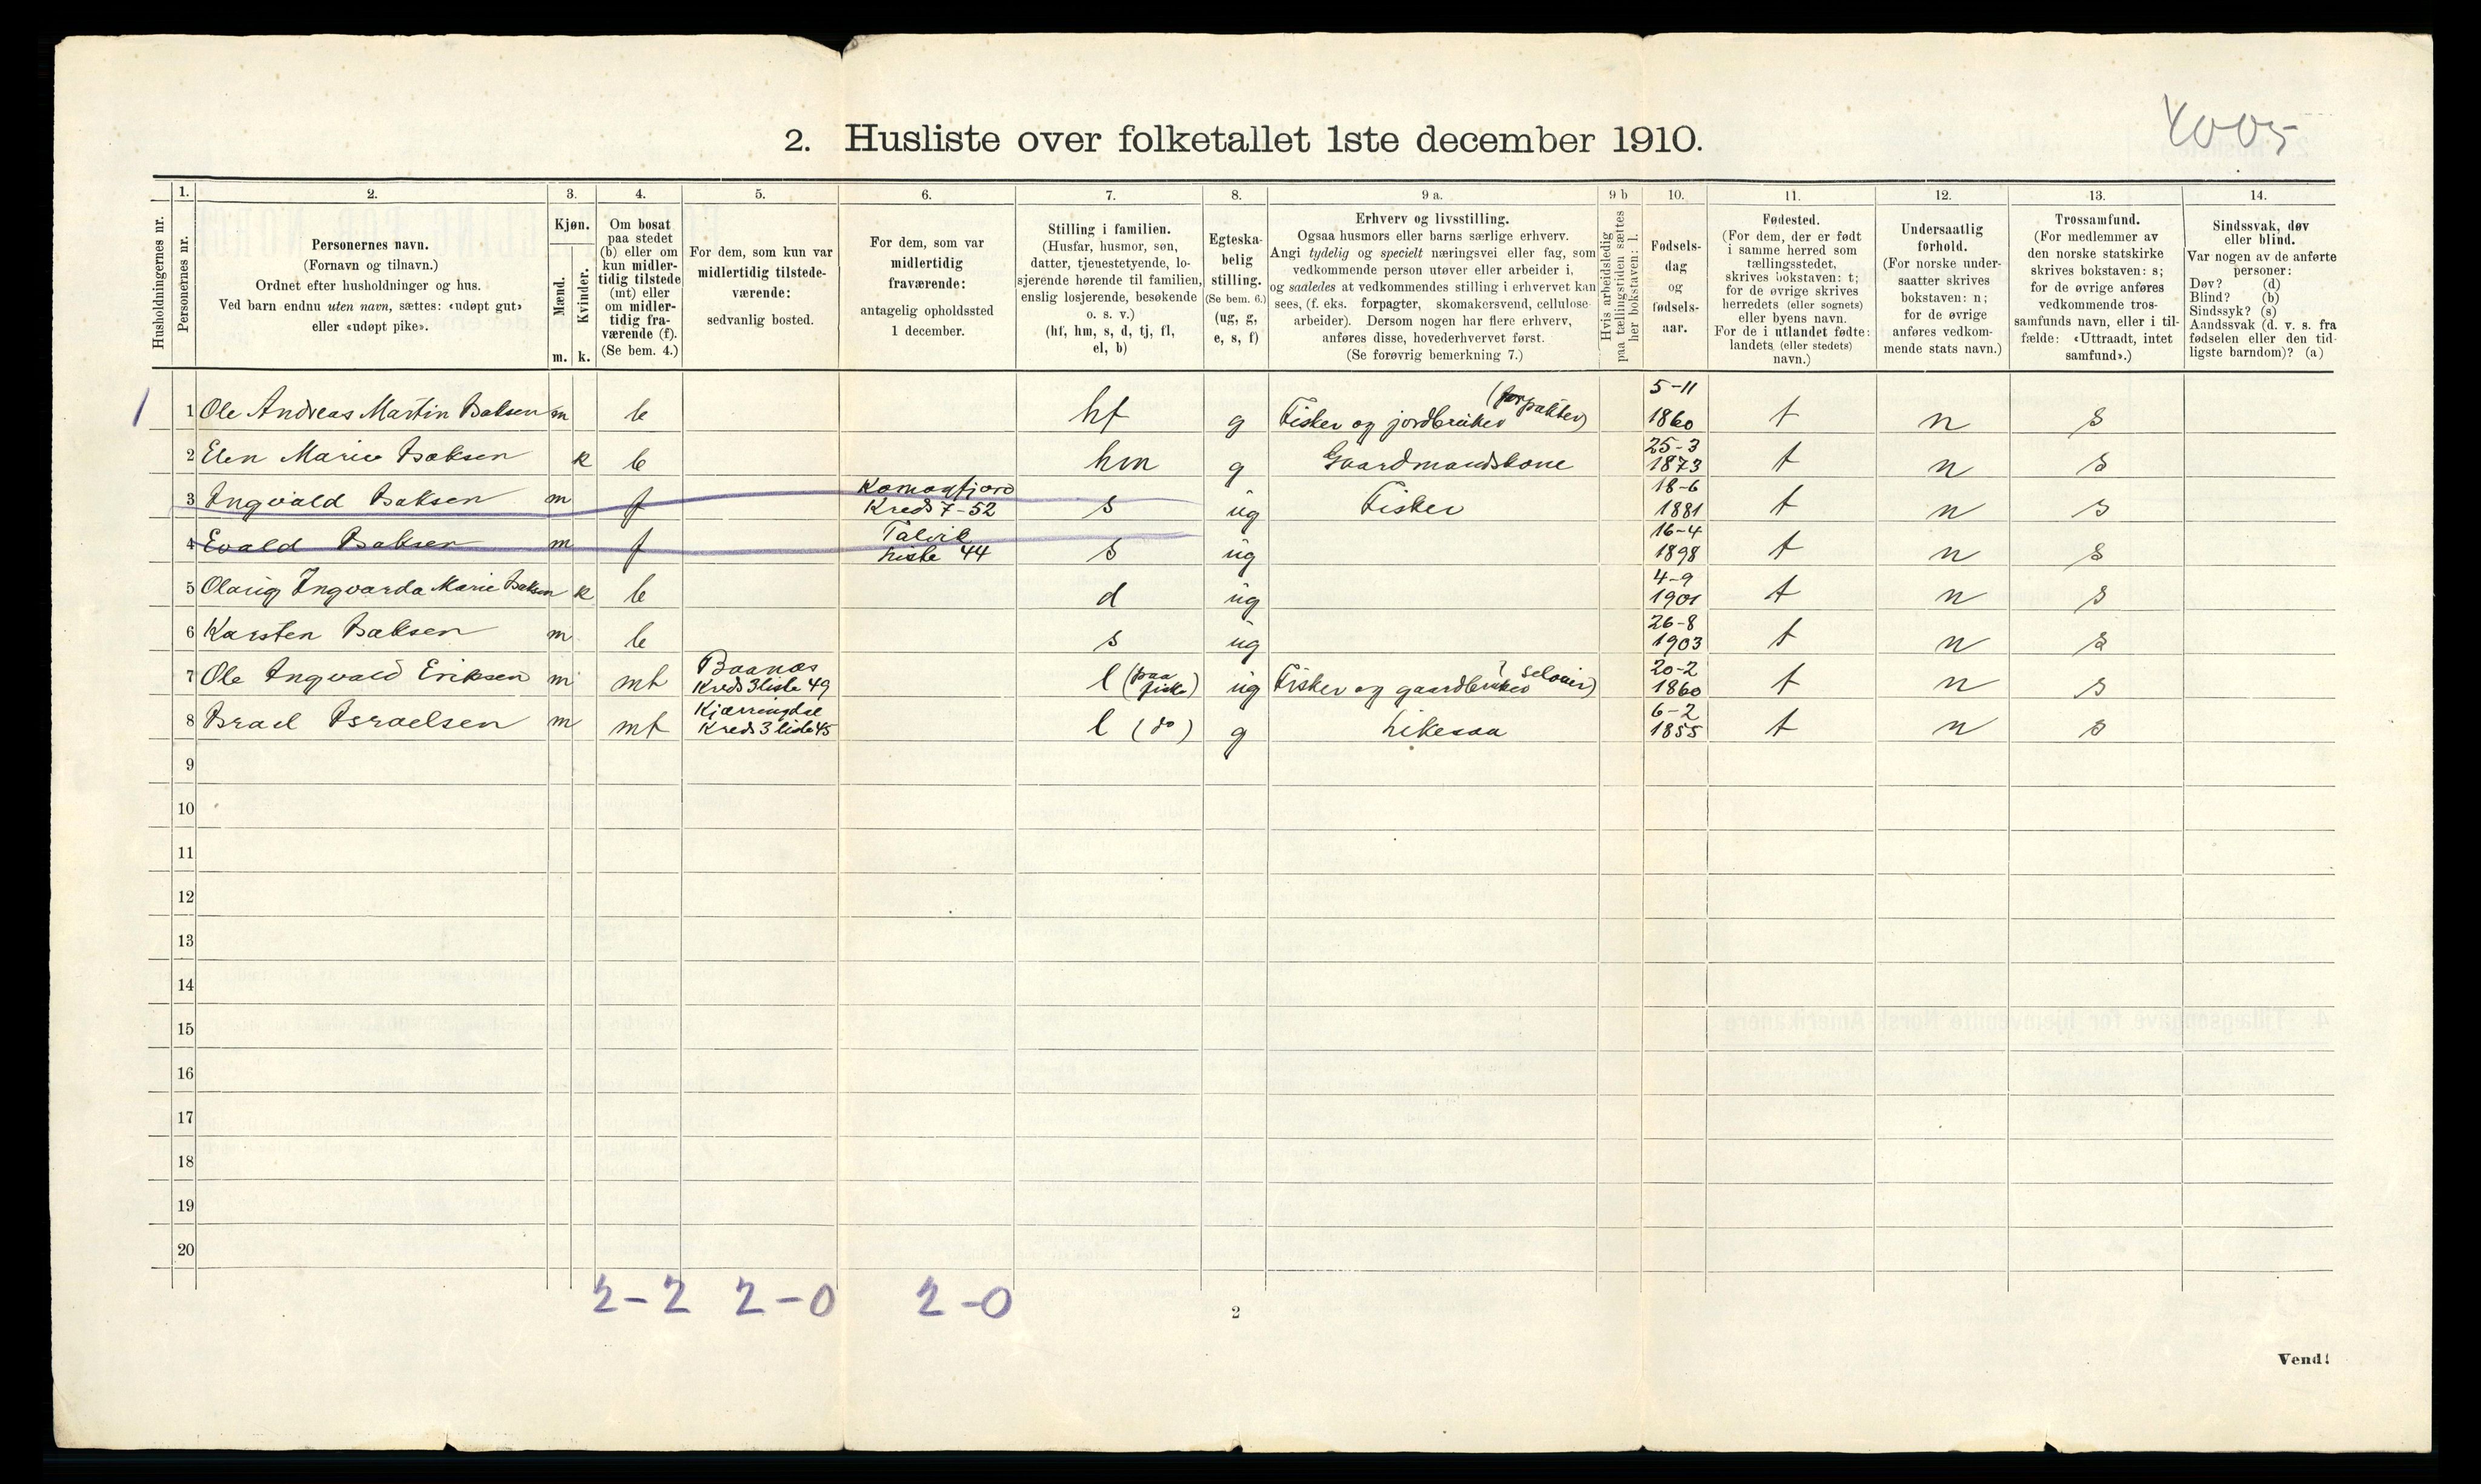 4005
2. Husliste over folketallet 1ste december 1910.
Husholdningernes nr.
1.
Personernes nr.
2.
Personernes navn.
(Fornavn og tilnavn.)
Ordnet efter husholdninger og hus.
Ved barn endnu uten navn, sættes: «udøpt gut»
eller «udøpt pike».
3.
Kjøn.
Mænd.
Kvinder.
m. k.
4.
Om bosat
paa stedet
(b) eller om
kun midler-
tidig tilstede
(mt) eller
om midler-
tidig fra-
værende (f).
(Se bem. 4.)
5.
For dem, som kun var
midlertidig tilstede-
værende:
sedvanlig bosted.
6.
For dem, som var
midlertidig
fraværende:
antagelig opholdssted
1 december.
7.
Stilling i familien.
(Husfar, husmor, søn,
datter, tjenestetyende, lo-
sjerende hørende til familien,
enslig losjerende, besøkende
o. s. v.)
(hf, hm, s, d, tj, fl,
el, b)
8.
Egteska-
belig
stilling.
(Se bem. 6.)
(ug, g,
e, s, f)
9 a.
Erhverv og livsstilling.
Ogsaa husmors eller barns særlige erhverv.
Angi tydelig og specielt næringsvei eller fag, som
vedkommende person utøver eller arbeider i,
og saaledes at vedkommendes stilling i erhvervet kan
sees, (f. eks. forpagter, skomakersvend, cellulose-
arbeider). Dersom nogen har flere erhverv,
anføres disse, hovederhvervet først.
(Se forøvrig bemerkning 7.)
9 b
Hvis arbeidsledig
paa tællingstiden sættes
her bokstaven: l.
10.
Fødsels-
dag
og
fødsels-
aar.
11.
Fødested.
(For dem, der er født
i samme herred som
tællingsstedet,
skrives bokstaven: t;
for de øvrige skrives
herredets (eller sognets)
eller byens navn.
For de i utlandet fødte:
landets (eller stedets)
navn.)
12.
Undersaatlig
forhold.
(For norske under-
saatter skrives
bokstaven: n;
for de øvrige
anføres vedkom-
mende stats navn.)
13.
Trossamfund.
(For medlemmer av
den norske statskirke
skrives bokstaven: s;
for de øvrige anføres
vedkommende tros-
samfunds navn, eller i til-
fælde: «Uttraadt, intet
samfund».)
14.
Sindssvak, døv
eller blind.
Var nogen av de anførte
personer:
Døv? (d)
Blind? (b)
Sindssyk? (s)
Aandssvak (d. v. s. fra
fødselen eller den tid-
ligste barndom)? (a)
1 1 Ole Andreas Martin Isaksen m b hf g Fisker og jordbruker (forpakter) 5-11 1860 t n s
2 Elen Marie Isaksen k b hm g Gaardmandskone 25-3 1873 t n s
3 Ingvald Isaksen m f Komagfjord Kreds 7-52 s ug Fisker 18-6 1881 t n s
4 Evald Isaksen m f Talvik Liste 44 s ug 16-4 1898 t n s
5 Olavig Ingvarda Marie Isaksen k b d ug 4-9 1901 t n s
6 Karsten Isaksen m b s ug 26-8 1903 t n s
7 Ole Ingvald Eriksen m mt Kreds 3 liste 49 l (paa fiske) ug Fisker og gaardbruker (Seloier) 20-2 1860 t n s
8 Israel Israelsen m mt Kjærringdal Kreds 3 liste 45 l (do) g Likesaa 6-2 1855 t n s
9
10
11
12
13
14
15
16
17
18
19
20
2-2 2-0 2-0
2
Vend!